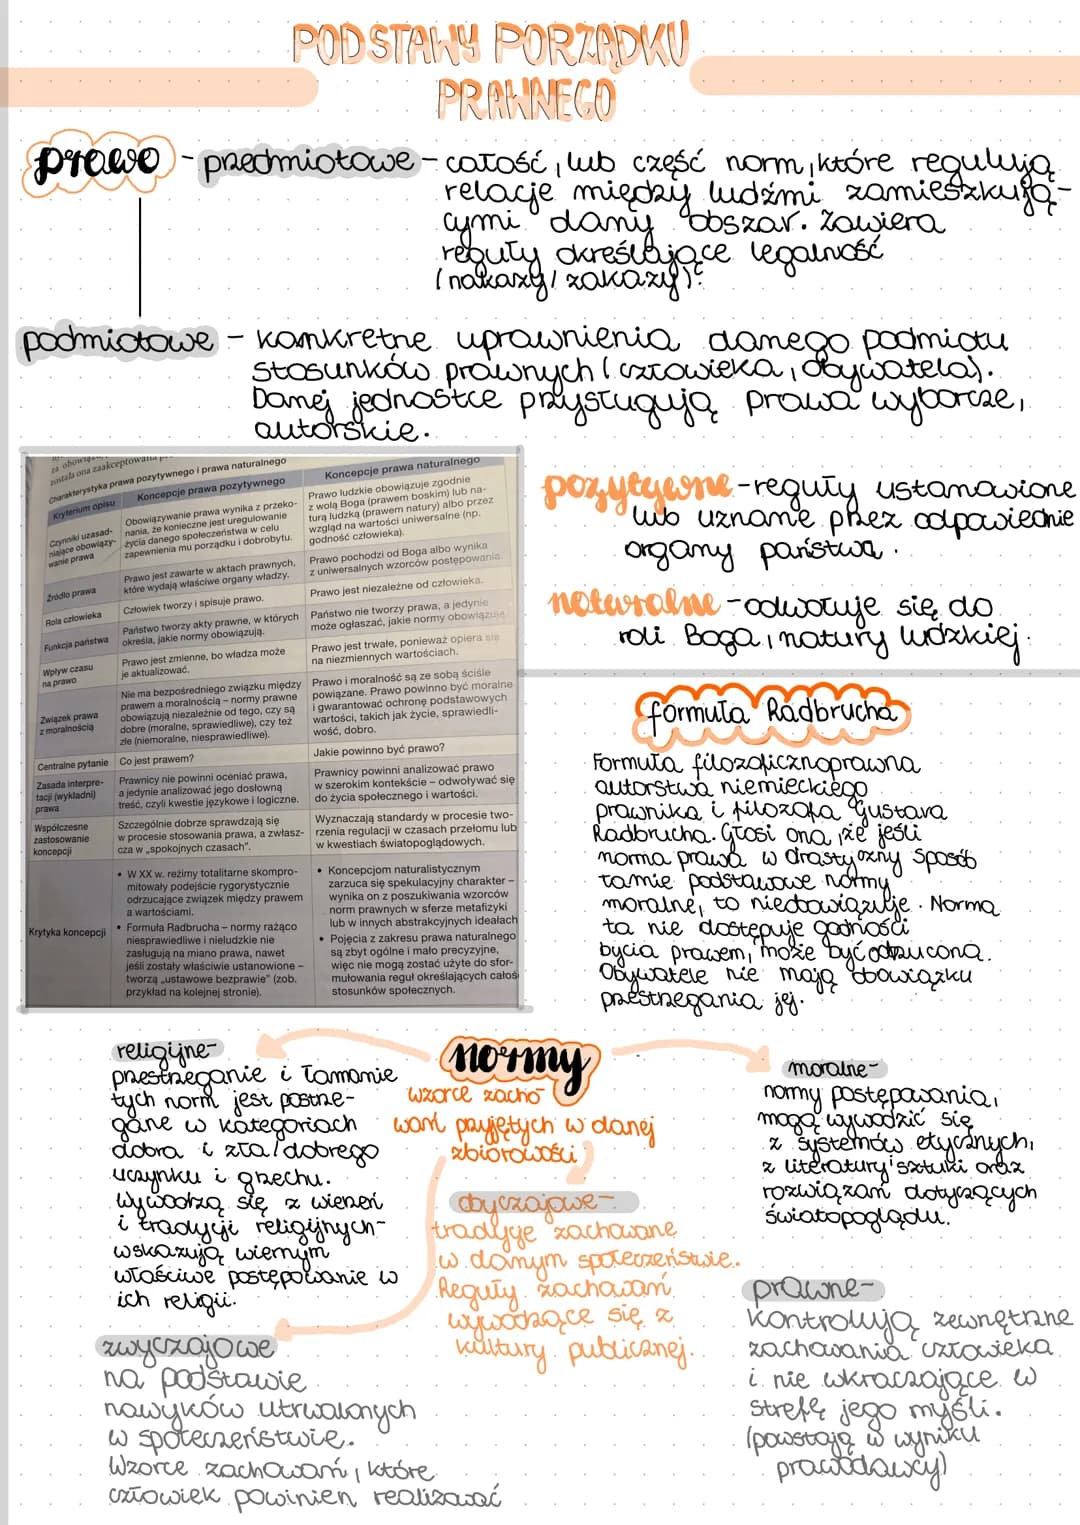 PODSTAWY PORZĄDKU
PRAWNEGO
prawo - przedmiotowe - całość, lub część norm, które regulują
relacje między ludźmi zamieszkują-
cymi dany obszar. Zawiera
reguły określające legalność
(nakazy/zakazy).
podmiotowe - konkretne uprawnienia danego podmiotu
stosunków prawnych (człowieka, obywatela).
Danej jednostce przysługują prawa wyborcze,
autorskie.
została ona zaakceptowana
Charakterystyka prawa pozytywnego i prawa naturalnego
Kryterium opisu
Koncepcje prawa pozytywnego
Koncepcje prawa naturalnego
Czynniki uzasad-
niające obowiązy-
wanie prawa
Obowiązywanie prawa wynika z przeko-
nania, że konieczne jest uregulowanie
życia danego społeczeństwa w celu
zapewnienia mu porządku i dobrobytu.
Prawo ludzkie obowiązuje zgodnie
z wolą Boga (prawem boskim) lub na-
turą ludzką (prawem natury) albo przez
wzgląd na wartości uniwersalne (np.
godność człowieka).
Źródło prawa
Prawo jest zawarte w aktach prawnych,
które wydają właściwe organy władzy.
Prawo pochodzi od Boga albo wynika
z uniwersalnych wzorców postępowania.
Rola człowieka
Człowiek tworzy i spisuje prawo.
Prawo jest niezależne od człowieka.
Funkcja państwa
Państwo tworzy akty prawne, w których
określa, jakie normy obowiązują.
Państwo nie tworzy prawa, a jedynie
może ogłaszać, jakie normy obowiązują.
Wpływ czasu
na prawo
Prawo jest zmienne, bo władza może
je aktualizować.
Prawo jest trwałe, ponieważ opiera się
na niezmiennych wartościach.
Związek prawa
z moralnością
Nie ma bezpośredniego związku między
prawem a moralnością – normy prawne
obowiązują niezależnie od tego, czy są
dobre (moralne, sprawiedliwe), czy też
złe (niemoralne, niesprawiedliwe).
Prawo i moralność są ze sobą ściśle
powiązane. Prawo powinno być moralne
i gwarantować ochronę podstawowych
wartości, takich jak życie, sprawiedli-
wość, dobro.
Centralne pytanie
Co jest prawem?
Jakie powinno być prawo?
Zasada interpre-
tacji (wykładni)
prawa
Prawnicy nie powinni oceniać prawa,
a jedynie analizować jego dosłowną
treść, czyli kwestie językowe i logiczne.
Prawnicy powinni analizować prawo
w szerokim kontekście – odwoływać się
do życia społecznego i wartości.
Współczesne
zastosowanie
koncepcji
Szczególnie dobrze sprawdzają się
w procesie stosowania prawa, a zwłasz-
cza w „spokojnych czasach".
Wyznaczają standardy w procesie two-
rzenia regulacji w czasach przełomu lub
w kwestiach światopoglądowych.
Krytyka koncepcji
• W XX w. reżimy totalitarne skompro-
mitowały podejście rygorystycznie
odrzucające związek między prawem
a wartościami.
• Formuła Radbrucha – normy rażąco
niesprawiedliwe i nieludzkie nie
zasługują na miano prawa, nawet
jeśli zostały właściwie ustanowione –
tworzą „ustawowe bezprawie" (zob.
przykład na kolejnej stronie).
• Koncepcjom naturalistycznym
zarzuca się spekulacyjny charakter –
wynika on z poszukiwania wzorców
norm prawnych w sferze metafizyki
lub w innych abstrakcyjnych ideałach
• Pojęcia z zakresu prawa naturalnego
są zbyt ogólne i mało precyzyjne,
więc nie mogą zostać użyte do sfor-
mułowania reguł określających całoś
stosunków społecznych.
pozytywne - reguły ustanowione
lub uznane przez odpowiednie
organy państwa.
naturalne - odwołuje się do
roli Boga, natury ludzkiej.
formuła Radbrucha
Formuła filozoficznoprawna
autorstwa niemieckiego
prawnika i filozofa Gustava
Radbrucha. Głosi ona, że jeśli
norma prawa w drastyczny sposób
łamie podstawowe normy
moralne, to nieobowiązuje. Norma
ta nie dostępuje godności
bycia prawem, może być odrzucona.
Obywatele nie mają obowiązku
przestrzegania jej.
normy
wzorce zacho
wań przyjętych w danej
zbiorowości
religijne-
przestrzeganie i łamanie
tych norm jest postrze-
gane w kategoriach
dobra i zła/dobrego
uczynku i grzechu.
Wywodzą się z wierzeń
i tradycji religijnych-
wskazują wiernym
właściwe postępowanie w
ich religii.
moralne-
normy postępowania,
mogą wywodzić się
z systemów etycznych,
z literatury, sztuki oraz
rozwiązań dotyczących
światopoglądu.
obyczajowe-
tradycje zachowane
w danym społeczeństwie.
Reguły zachowań
wywodzące się z
kultury publicznej.
zwyczajowe
na podstawie
nawyków utrwalonych
w społeczeństwie.
Wzorce zachowań, które
człowiek powinien realizować
prawne-
kontrolują zewnętrzne
zachowania człowieka
i nie wkraczające w
strefę jego myśli.
(powstają w wyniku
prawodawcy)